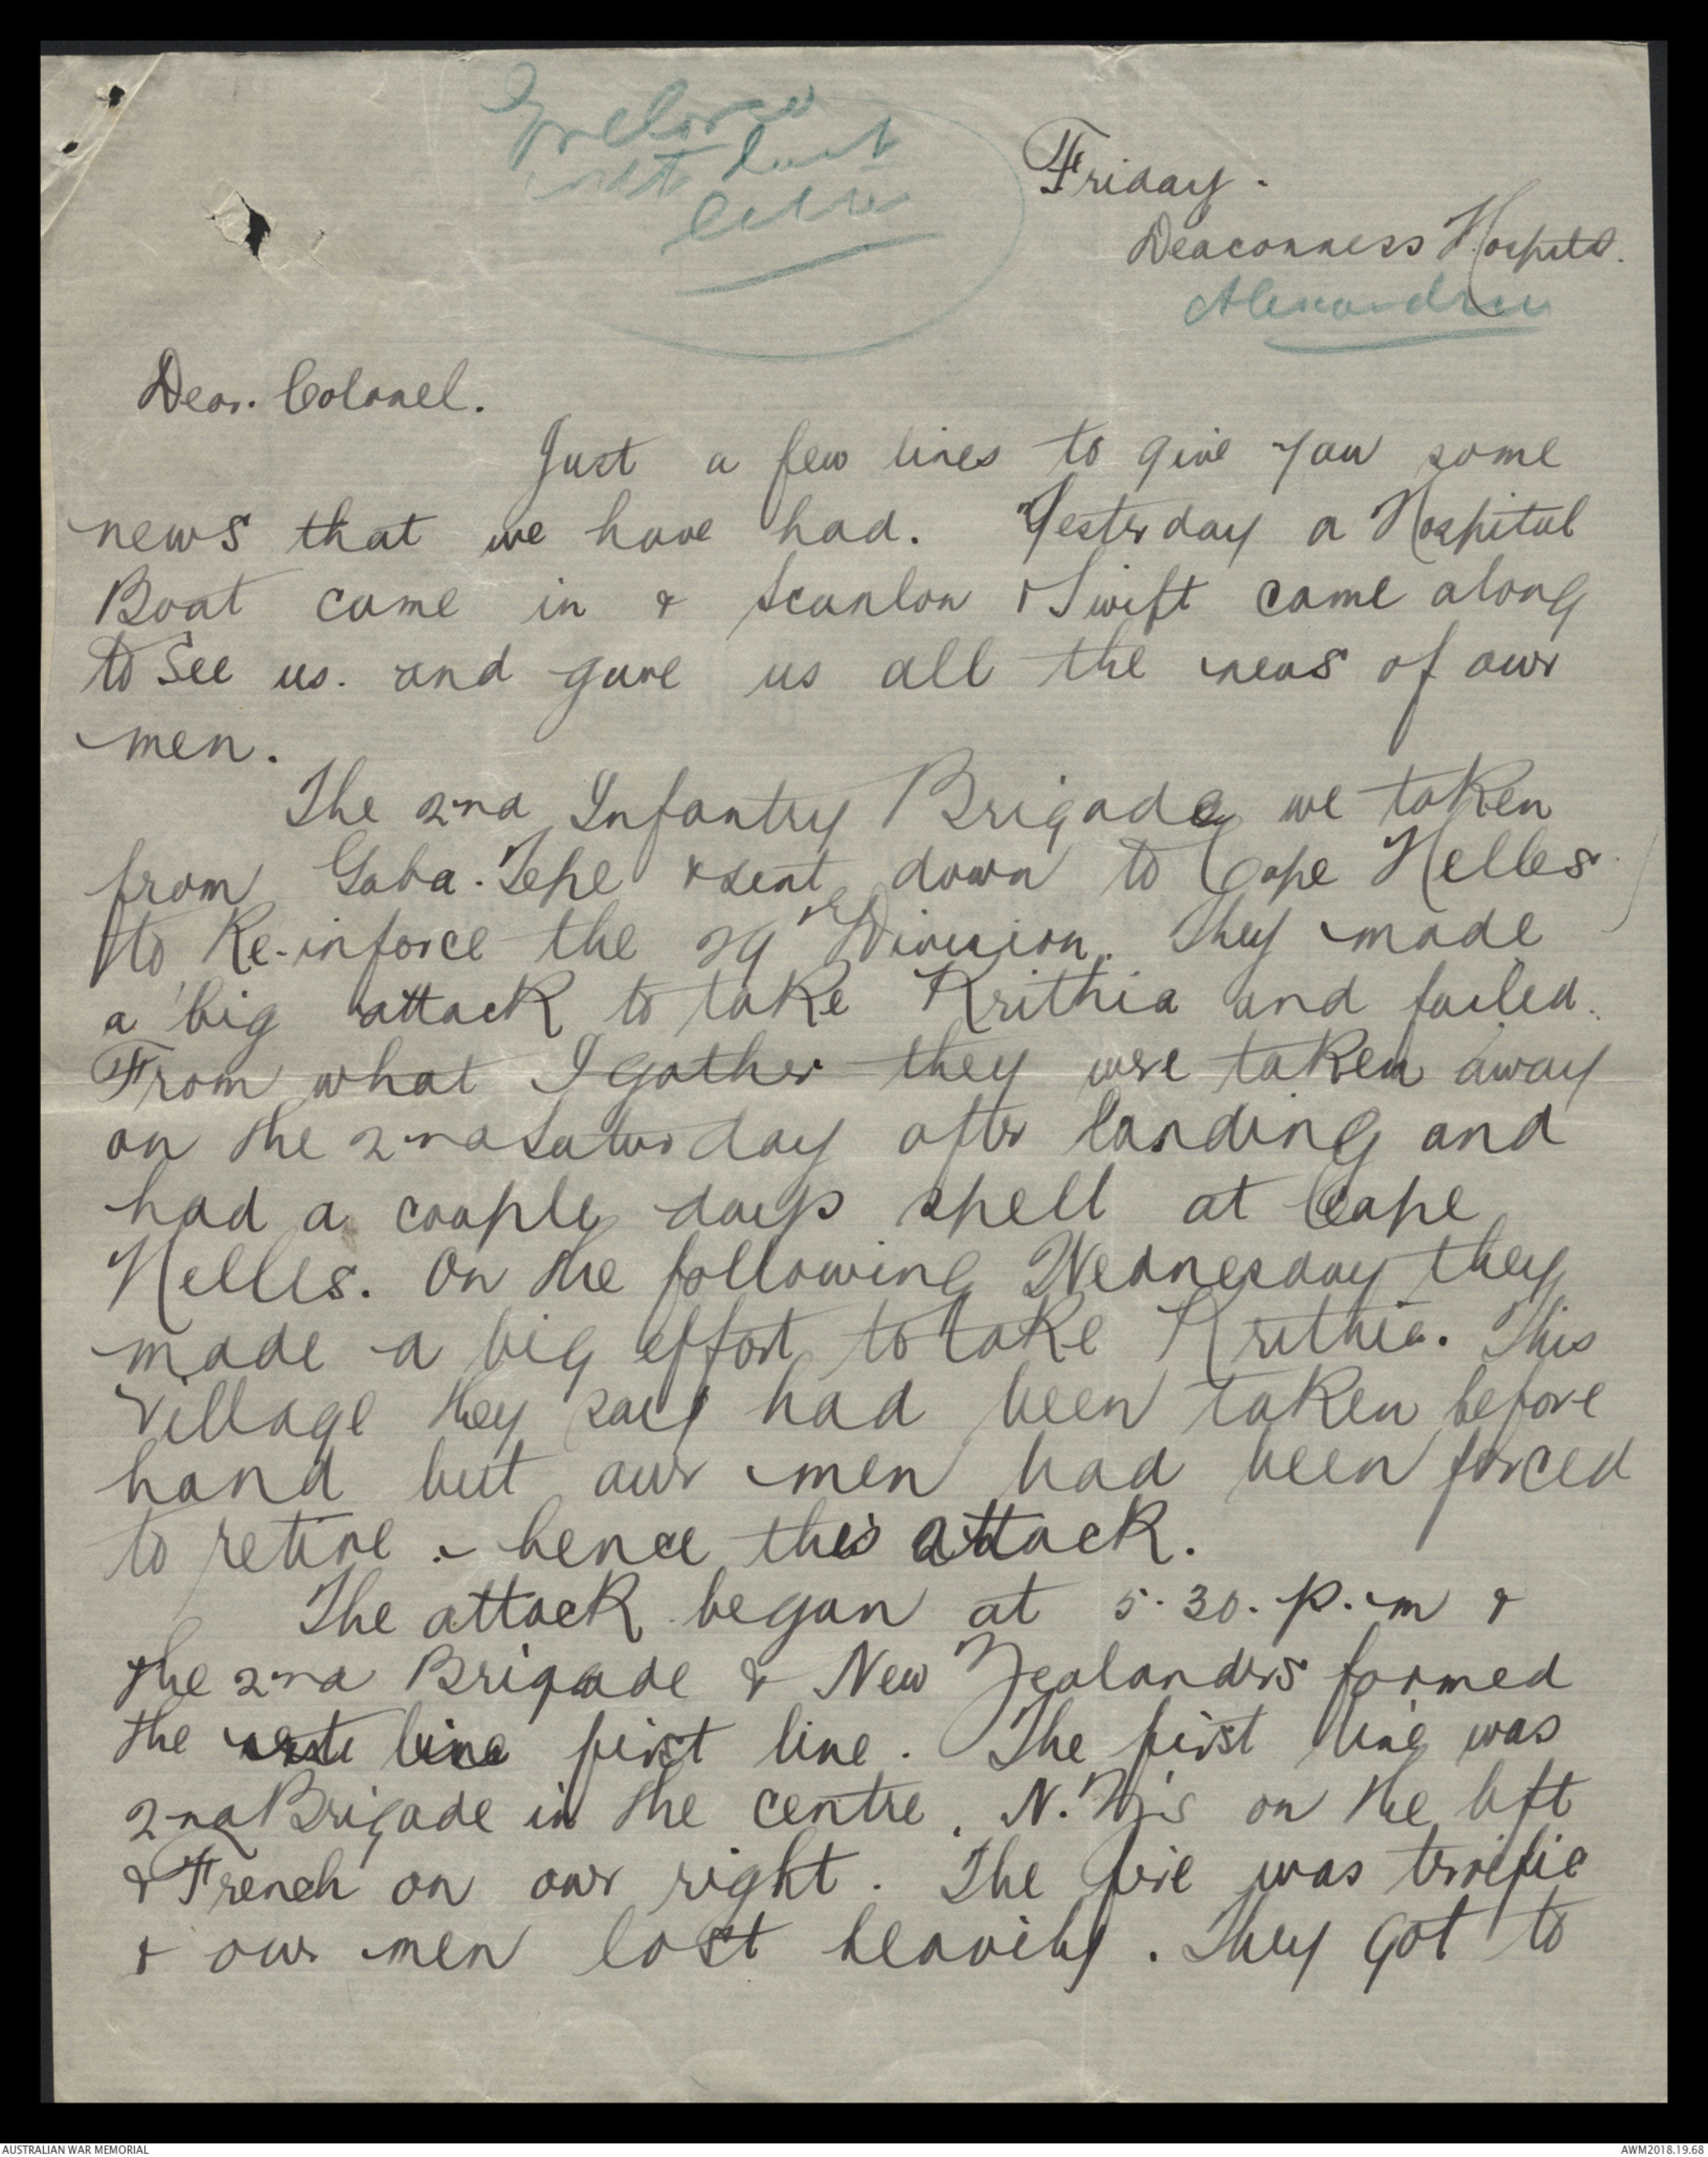 Enclosed
with last
letter
Friday.
Deaconness Hospital.
Alexandria
Dear. Colonel.
Just a few lines to give you some
news that we have had. Yesterday a Hospital
Boat came in & Scanlon & Swift came along
to See us. and gave us all the news of our
men.
The 2nd Infantry Brigade we taken
from Gaba. Tepe & sent down to Cape Helles
to Re-inforce the 29th Division. They made
a big attack to take Krithia and failed.
From what I gather they were taken away
on the 2nd Saturday after landing and
had a couple days spell at Cape
Helles. On the following Wednesday they
made a big effort to take Krithia. This
Village they say had been taken before
hand but our men had been forced
to retire - hence this attack.
The attack began at 5.30. p.m &
the 2nd Brigade & New Zealanders formed
the line first line. The first line was
2nd Brigade in the centre, N.Z's on the left
& French on our right. The fire was terrific
& our men lost heavily. They got to
AUSTRALIAN WAR MEMORIAL
AWM2018.19.68